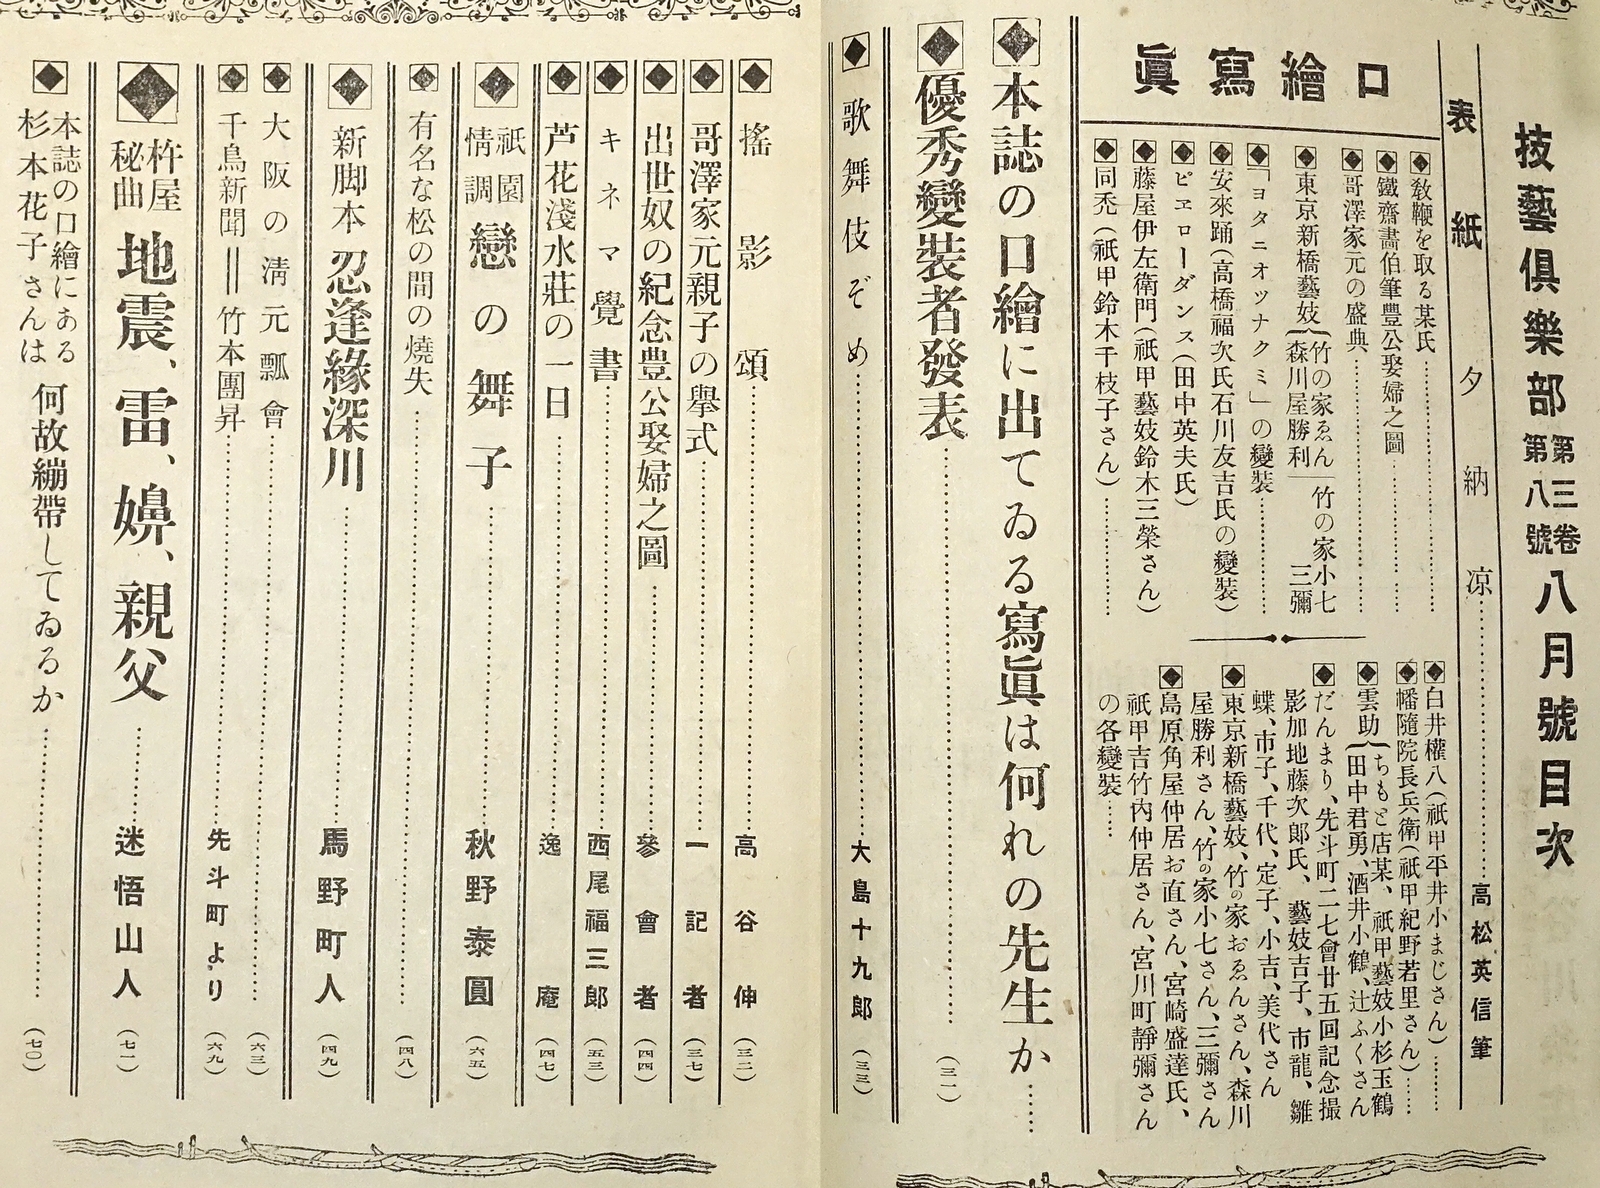 技藝倶樂部 第三卷第八號 八月號目次
表紙 夕納凉……高松英信筆
口繪寫眞
教鞭を取る某氏
鐵齋畵伯筆豊公娶婦之圖
哥澤家元の盛典
東京新橋藝妓(竹の家ゑん 竹の家小七 森川屋勝利 三彌
「ヨタニオツナクミ」の變裝
安來踊(高橋福次氏石川友吉氏の變裝)
ピエローダンス(田中英夫氏)
藤屋伊左衛門(祇甲藝妓鈴木三榮さん)
同禿(祇甲鈴木千枝子さん)
白井權八(祇甲平井小まじさん)
幡隨院長兵衛(祇甲紀野若里さん)
雲助(ちもと店某、祇甲藝妓小杉玉鶴 田中君勇、酒井小鶴、辻ふくさん
だんまり、先斗町二七會廿五回記念撮
影加地藤次郎氏、藝妓吉子、市龍、雛
蝶、市子、千代、定子、小吉、美代さん
東京新橋藝妓、竹の家おゑんさん、森川
屋勝利さん、竹の家小七さん、三彌さん
島原角屋仲居お直さん、宮崎盛達氏、
祇甲吉竹内仲居さん、宮川町靜彌さん
の各變裝……
本誌の口繪に出てゐる寫眞は何れの先生か……
優秀變裝者發表……(三一)
歌舞伎ぞめ……大島十九郎(三三)
搖影頌……高谷伸(三二)
哥澤家元親子の擧式……一記者(三七)
出世奴の紀念豊公娶婦之圖……參會者(四四)
キネマ覺書……西尾福三郎(五三)
芦花淺水莊の一日……逸庵(四七)
祇園情調 戀の舞子……秋野泰圓(六五)
有名な松の間の燒失……(四八)
新脚本 忍逢緣深川……馬野町人(四九)
大阪の淸元瓢會……(六三)
千鳥新聞||竹本團昇……先斗町より(六九)
杵屋秘曲 地震、雷、嬶、親父……迷悟山人(七一)
本誌の口繪にある杉本花子さんは 何故繃帶してゐるか……(七〇)